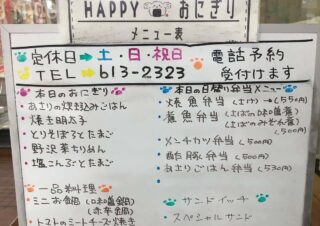 HAPPY おにぎり
メニュー表
定休日➡土・日・祝日
TEL➡613-2323
電話予約
受付けます
本日のおにぎり
・あさりの炊き込みごはん
・焼き明太子
・とりそぼろとたまご
・野沢菜ちりめん
・塩こんぶとたまご
一品料理
ミニお鍋(味噌鍋)
トマトのミートチーズ焼き
本日の日替り弁当メニュー
・焼魚弁当(さけ)→(550円)
・煮魚弁当(さばの味噌煮)
(さばのみぞれ煮)
・メンチカツ弁当(500円)
・酢豚弁当(500円)
・あさりごはん弁当(530円)
サンドイッチ
・スペシャルサンド